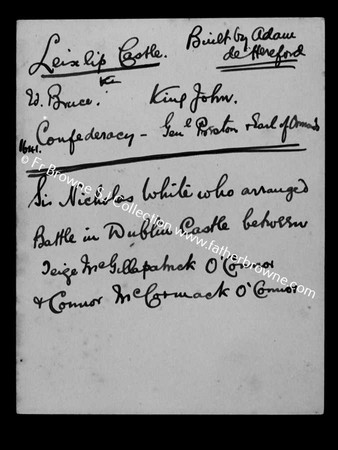 Leixlip Castle. Built by Adam
de Hereford
Ed. Bruce. King John.
1641. Confederacy – Genl Preston & Earl of Ormond
Sir Nicholas White who arranged
Battle in Dublin Castle between
Teige McGillapatrick O'Connor
& Connor McCormack O'Connor
© Fr Browne SJ Collection www.fatherbrowne.com